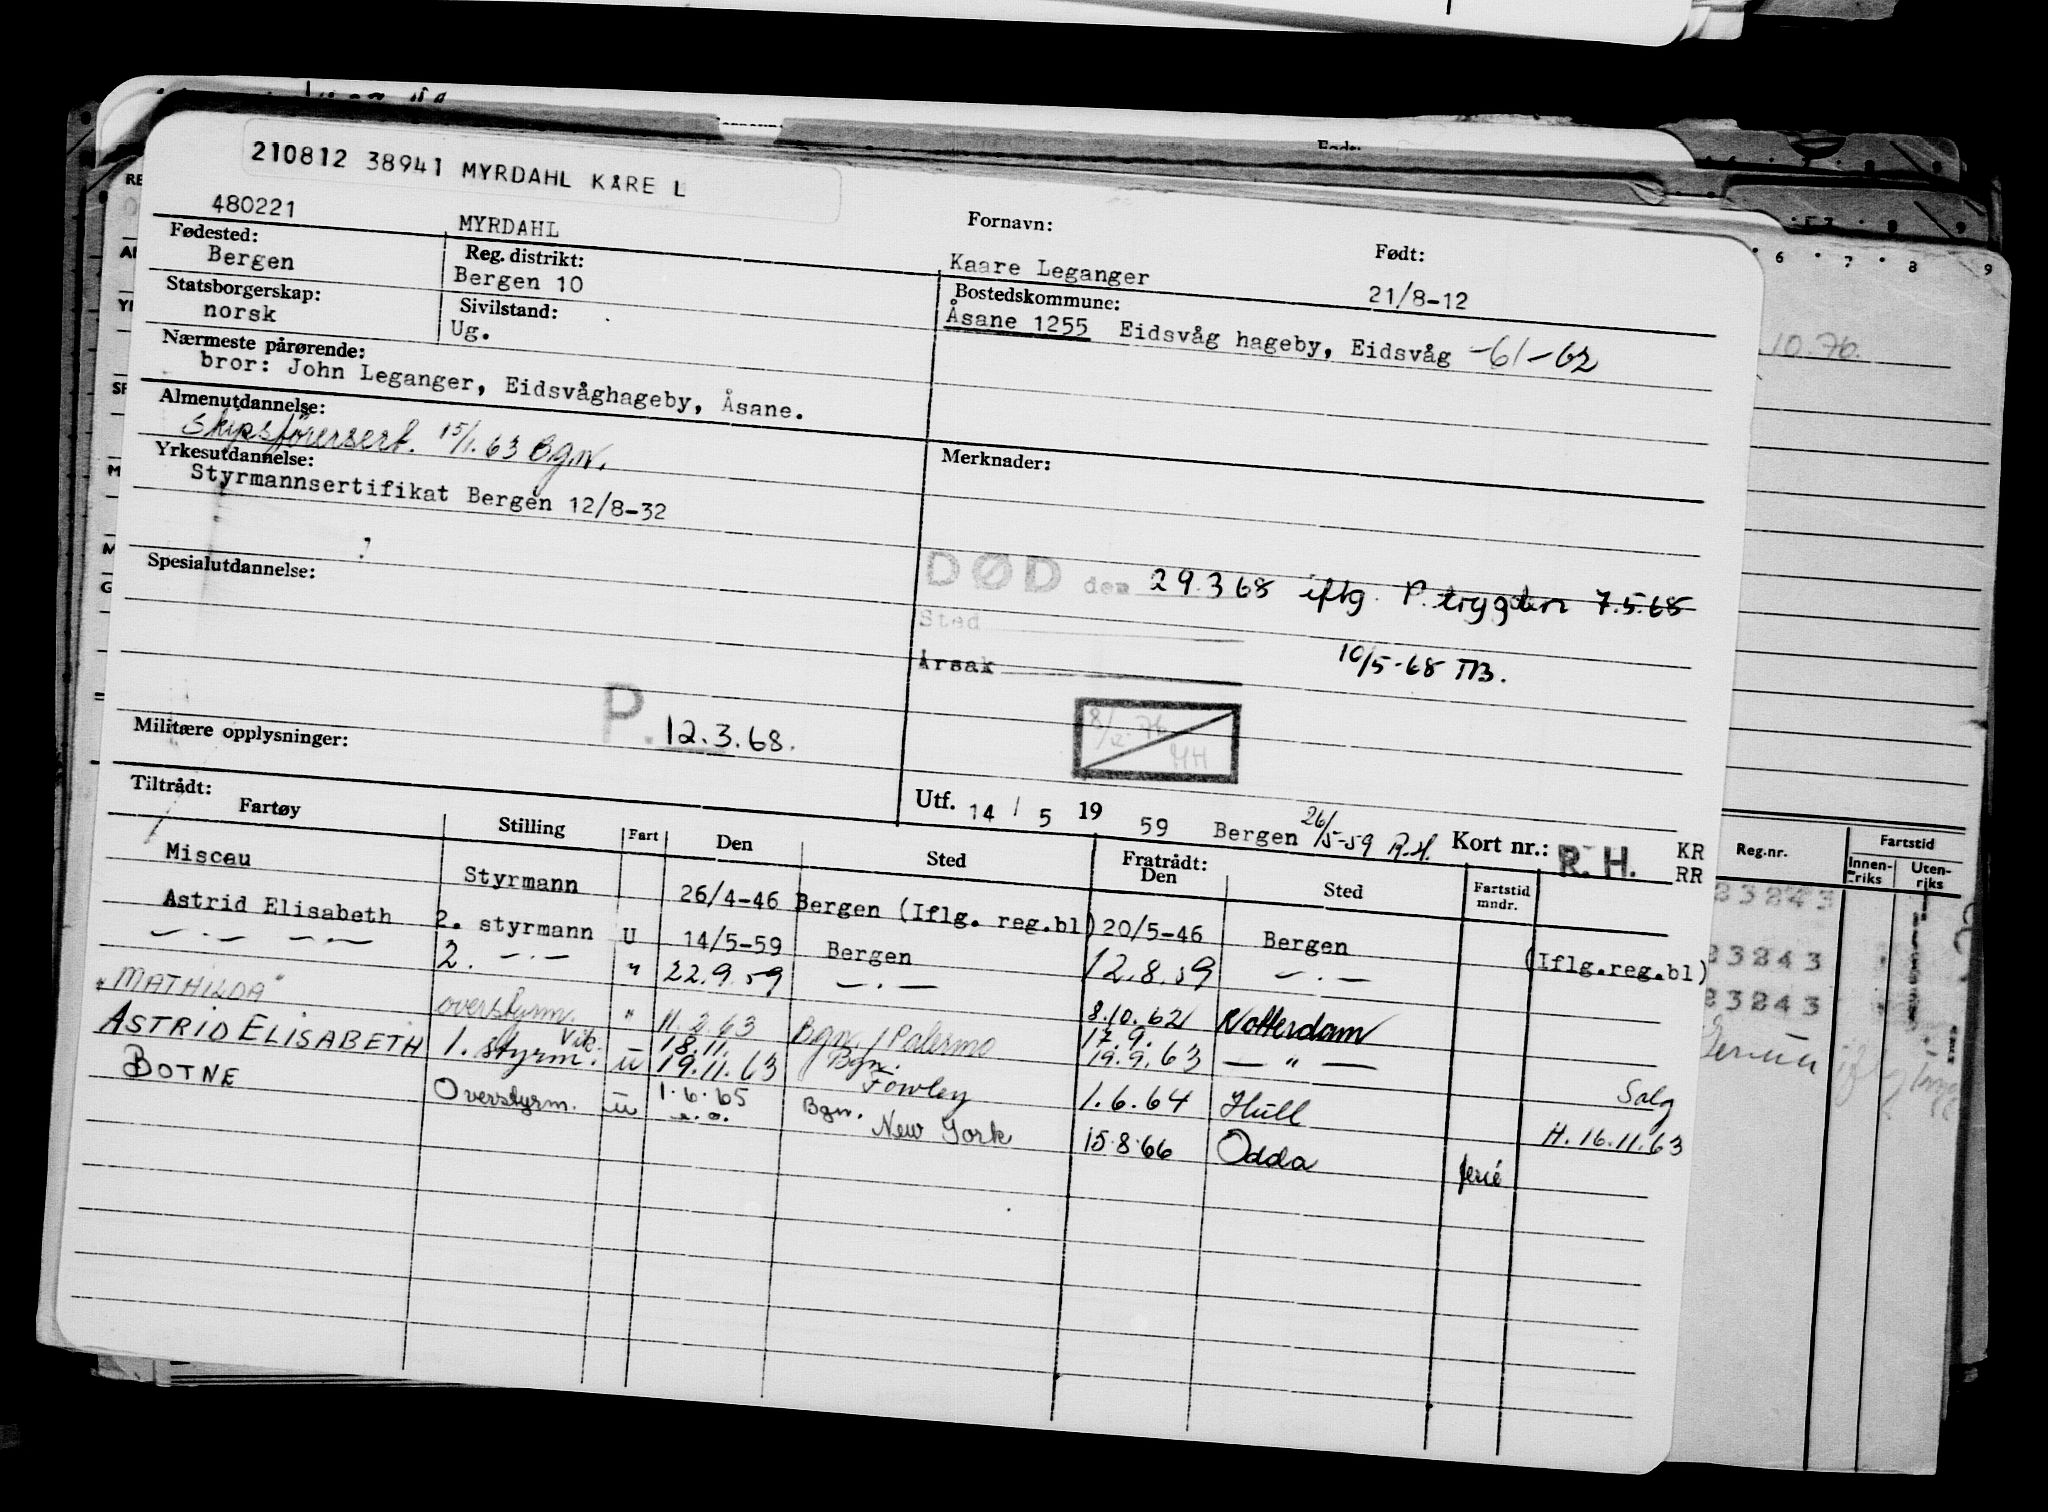 210812 38941 MYRDAHL KÅRE L
480221 MYRDAHL Fornavn: Født:
Kaare Leganger 21/8-12
Fødested: Reg. distrikt: Bostedskommune:
Bergen Bergen 10 Åsane 1255 Eidsvåg hageby, Eidsvåg -61-62
Statsborgerskap: Sivilstand:
norsk Ug.
Nærmeste pårørende:
bror: John Leganger, Eidsvåghageby, Åsane.
Almenutdannelse:
Skipsförersert. 15/1.63 Bgn.
Yrkesutdannelse: Merknader:
Styrmannsertifikat Bergen 12/8-32
Spesialutdannelse:
DØD den 29.3 68 iflg. P. trygden 7.5.68
Sted
Årsak 10/5-68 TB.
P. 12.3.68.
8/12-76 HH
Militære opplysninger:
Utf. 14 / 5 19 59 Bergen 26/5-59 R.H. Kort nr.: R.H. KR
RR
Tiltrådt: Fratrådt:
Fartøy Stilling Fart Den Sted Den Sted Fartstid mndr.
Miscau Styrmann 26/4-46 Bergen (Iflg. reg.bl) 20/5-46 Bergen (Iflg.reg.bl)
Astrid Elisabeth 2. styrmann U 14/5-59 Bergen 12.8.59 — . —
— . — — . — 2. — . — " 22.9.59 — . — 8.10.62 Rotterdam
"MATHILDA" overstyrm. " 11.2.63 Bgn. / Palermo 17.9. 19.9.63 — " — Salg
ASTRID ELISABETH 1. styrm. Vik. u 18.11. 19.11.63 Bgn. Fowley 1.6.64 Hull H. 16.11.63
BOTNE Overstyrm. u 1.6.65 s.d. Bgn. New York 15.8.66 Odda ferie
6 7 8 9
10.76.
Reg.nr. Fartstid
Innen-riks Uten-riks
23243
23243
23243